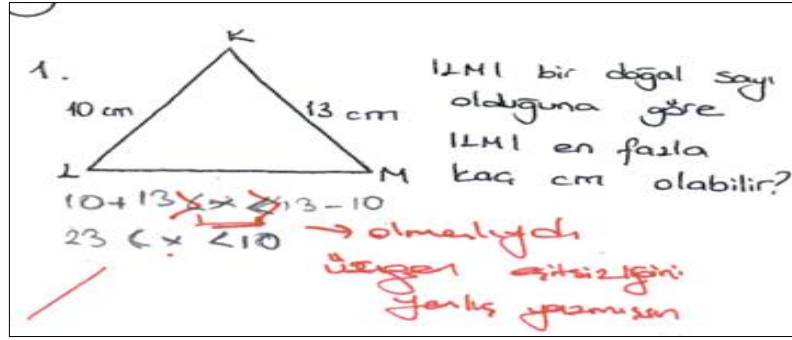 1.
K
10 cm
13 cm
L
M
|LM| bir doğal sayı
olduğuna göre
|LM| en fazla
kaç cm olabilir?
10+13 < x < 13-10
23 < x < 10
→ olmalıydı
üçgen eşitsizliğini
yanlış yazmışsın